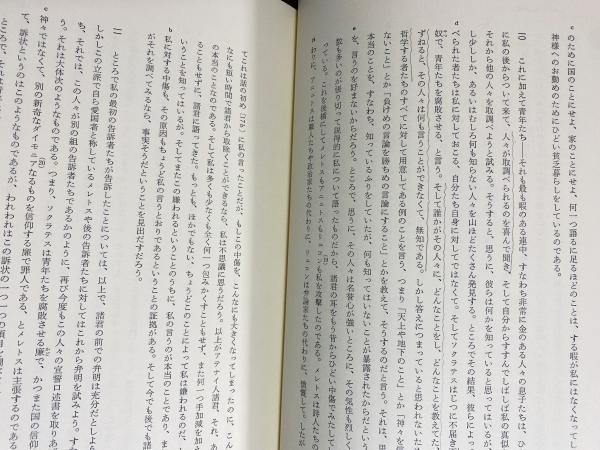 のために国のことにせよ、家のことにせよ、何一つ語るに足るほどのことは、する暇が私にはなくなってし
神様へのお勤めのためにひどい貧乏暮らしをしているのである。
c
一〇 これに加えて青年たち――それも最も暇のある連中、すなわち非常に金のある人々の息子たちは、ひ
に私の後からついて来て、人々が取調べられるのを喜んで聞き、そして自分からすすんでしばしば私の真似
それから他の人々を取調べようと試みる。そうすると、思うに、彼らは何かを知っていると思ってはいるが、
し少ししか、あるいはむしろ何も知らない人々を山ほどたくさん発見する。ところでその結果、彼らによっ
べられた者たちは私に対しておこる、自分たち自身に対してではなくて。そしてソクラテスはじつに不届き
d
奴で、青年たちを腐敗させる、と言う。そして誰かがその人々に、どんなことをし、どんなことを教えて
ずねると、その人々は何も言うことができなくて、無知である。しかし答えにつまっていると思われないため
哲学する者たちのすべてに対して用意してある例のことを言う、つまり「天上や地下のこと」とか「神々を信
ないこと」とか「負けめの言論を勝ちめの言論にすること」とかを教えて、そうするのだと言う。それは、思
本当のことを、すなわち、知っているふりをしていたが、何も知ってはいないことが暴露されたからだという
を、言うのを好まないからだろう。ところで、思うに、その人々は名誉心が強いところに、その気性も烈しく
e
数も多いのが張り切って説得的に私について語ったものだから、諸君の耳をもう昔からひどい中傷でみたして
ている。これを後楯にしてメレトスもアニュトスもリュコンも私を攻撃したのである。メレトスは詩人たちの
わりに、アニュトスは職人たちや政治家たちの代わりに、リュコンは弁論家たちの代わりに、憤慨して。したが
てこれは話の初め
に私の言ったことだが、もしこの中傷を、こんなにも大きくなってしまったのに、こん
なにも短い時間で諸君から取除くことができるなら、私は不思議に思うだろう。以上がアテナイ人諸君、それ、あ
の本当のことなのである。そして私は多くも少なくも全く何一つ包みかくすこともせず、また何一つ手加減を加え
ることもせずに、諸君に語ってきた。もっとも、ほかでもない、ちょうどこのことによって私は嫌われるのだ、し
いうことを知ってはいるが。そしてまたこの嫌われるということのうちに、私の言うのが本当のことであり、ま
b
私に対する中傷も、その原因もちょうど私の言うとおりであるということの証拠がある。そして今でも後でも諸
がそれを調べてみるなら、事実そうだということを見出すだろう。
一一 ところで私の最初の告訴者たちが告訴したことについては、以上で、諸君の前での弁明は充分だとしよう
しかしこの立派で自ら愛国者と称しているメレトスや後の告訴者たちに対してはこれから弁明を試みよう。す
ち、それでは、この人々が別の組の告訴者たちであるかのように、再び今度もこの人々の宣誓口述書を取り上げ
う。それは大体次のようなものである。つまり、ソクラテスは青年たちを腐敗させる廉で、かつまた国の信仰
c
神々ではなくて、別の新奇なダイモニアなるものを信仰する廉で罪人である、とメレトスは主張するのである
て、訴状というのはこのようなものであるが、われわれはこの訴状の一つ一つの項目を